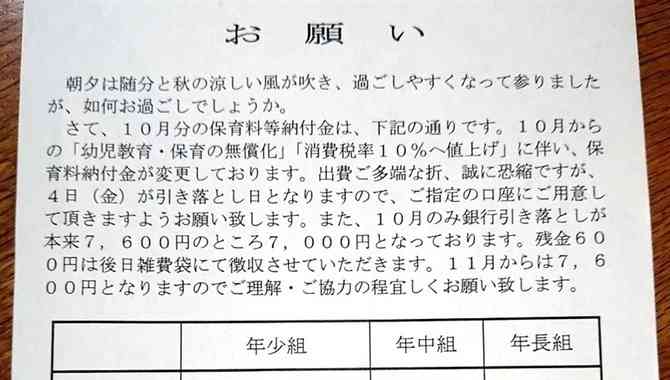 お 願 い
朝夕は随分と秋の涼しい風が吹き、過ごしやすくなって参りました
が、如何お過ごしでしょうか。
さて、１０月分の保育料等納付金は、下記の通りです。１０月から
の「幼児教育・保育の無償化」「消費税率１０％へ値上げ」に伴い、保
育料納付金が変更しております。出費ご多端な折、誠に恐縮ですが、
４日（金）が引き落とし日となりますので、ご指定の口座にご用意し
て頂きますようお願い致します。また、１０月のみ銀行引き落としが
本来７，６００円のところ７，０００円となっております。残金６０
０円は後日雑費袋にて徴収させていただきます。１１月からは７，６
００円となりますのでご理解・ご協力の程宜しくお願い致します。
年少組 年中組 年長組